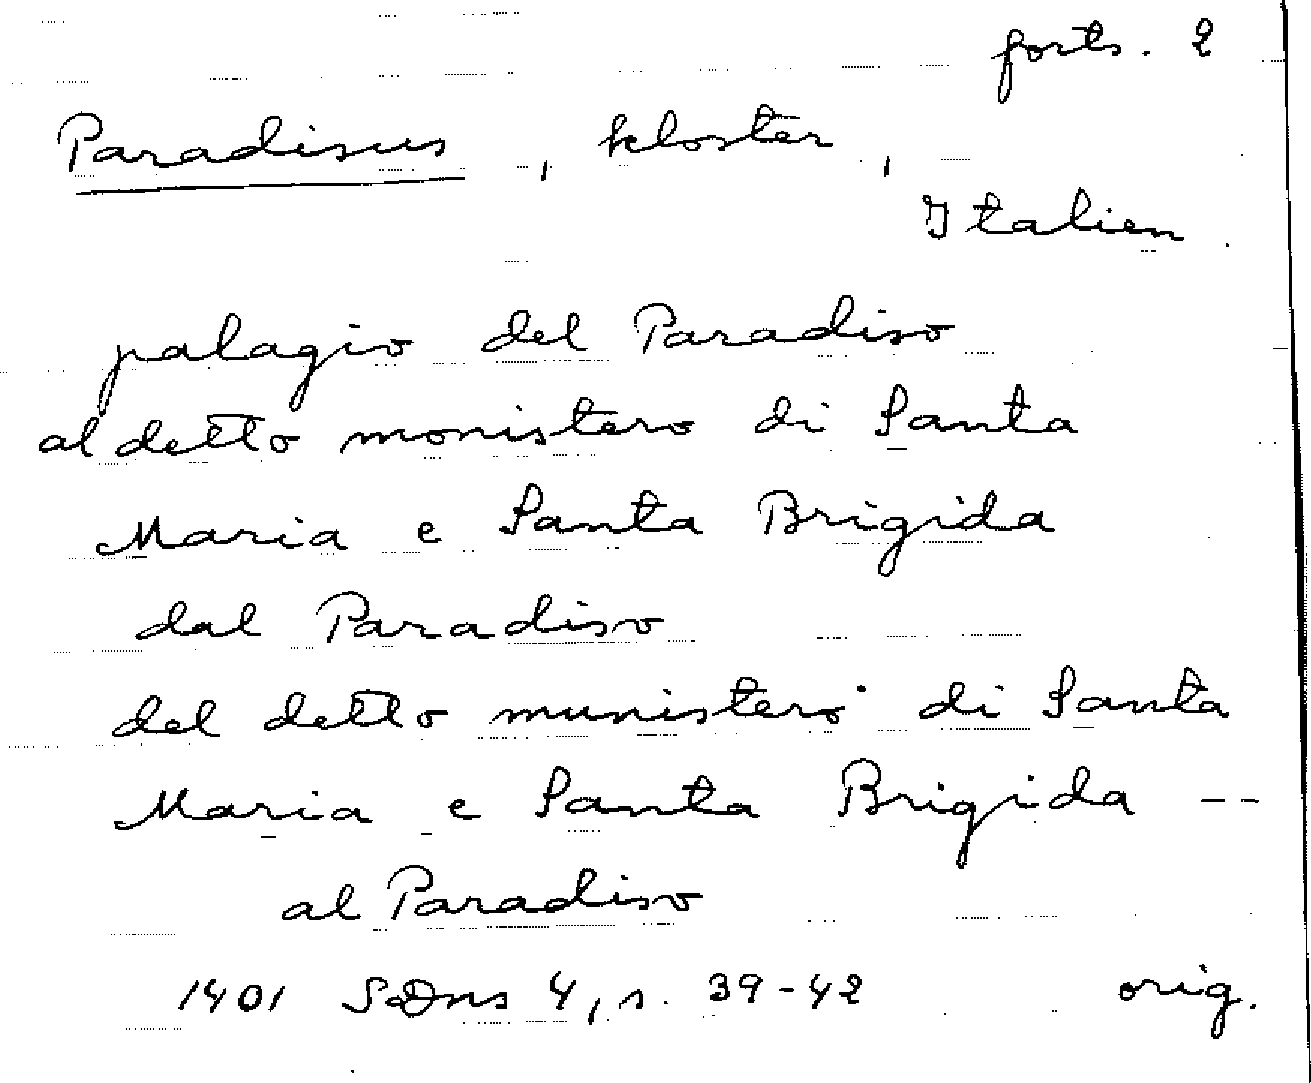 forts. 2
Paradisus, kloster,
Italien.
palagio del Paradiso
al detto monistero di Santa
Maria e Santa Brigida
dal Paradiso
del detto munistero di Santa
Maria e Santa Brigida --
al Paradiso
1401 SDns 4, s. 39-42 orig.